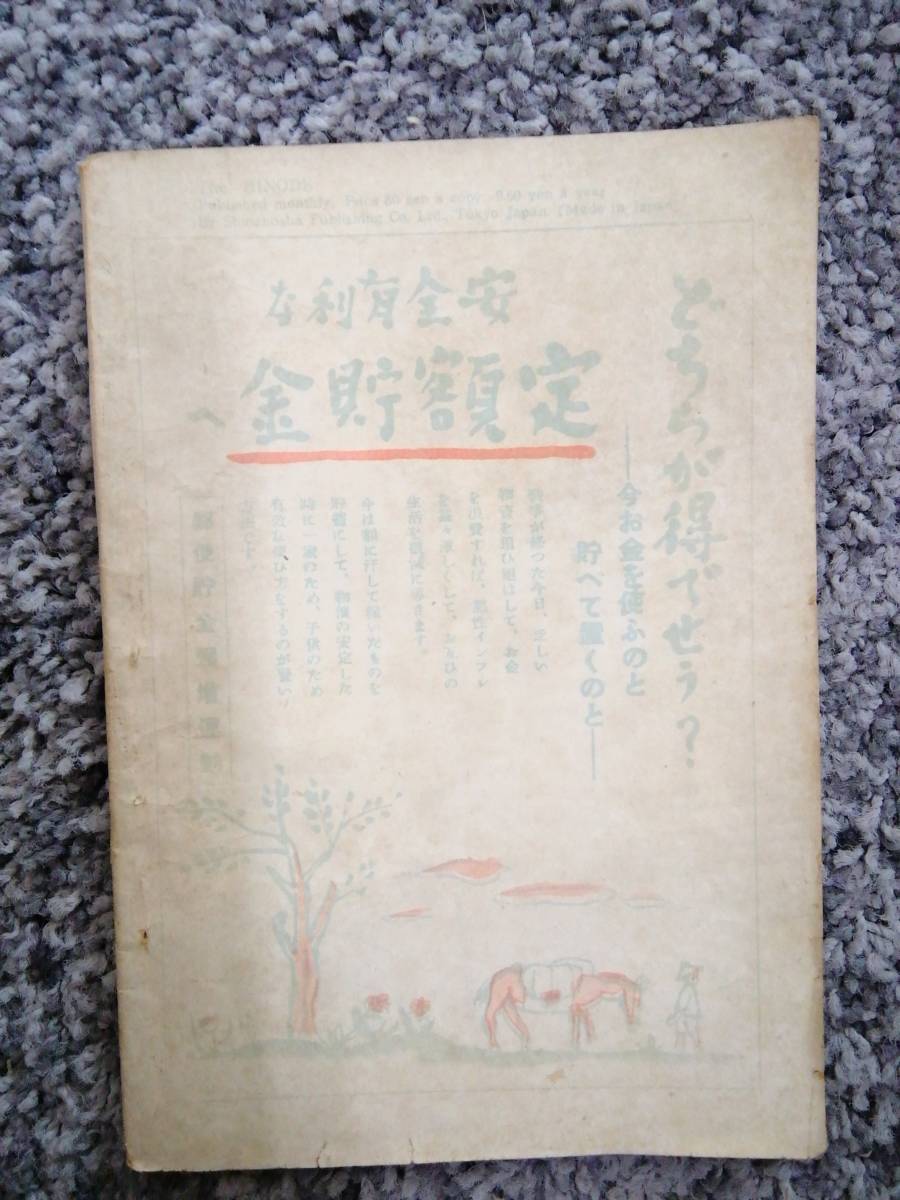 The HINODE
Published monthly. Price 80 sen a copy. 9.60 yen a year
by Shinchosha Publishing Co. Ltd., Tokyo Japan (Made in Japan
どちらが得でせう?
――今お金を使ふのと
貯べて置くのと――
安全有利な
定額貯金
へ
戦争が終つた今日、乏しい
物資を追ひ廻はして、お金
を出費すれば、悪性インフレ
を益々激しくして、お互ひの
生活を破滅に導きます。
今は額に汗して稼いだものを
貯蓄にして、物価の安定した
時に一家のため、子供のため
有效な使ひ方をするのが賢い
方法です。
郵便貯金